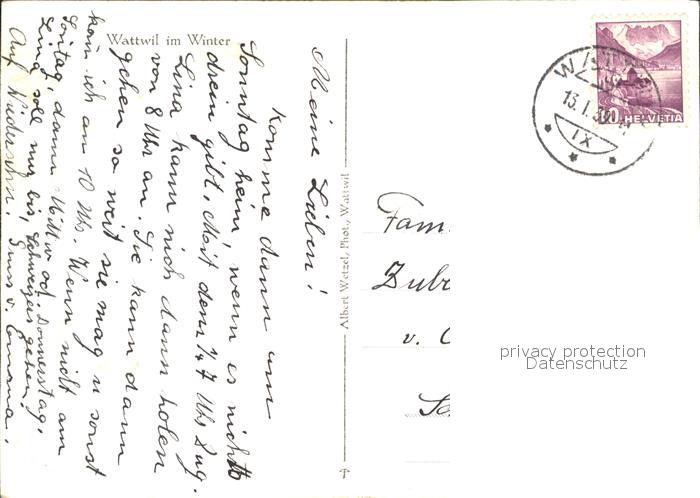 Wattwil im Winter
Meine Lieben!
Komme dann am
Sonntag heim, wenn es nichts
drein gibt. Mit dem ¼ 7 Uhr Zug.
Lina kann mich dann holen
von 8 Uhr an. Sie kann dann
gehen so weit sie mag u sonst
kom ich am 10 Uhr. Wenn nicht am
Sontag, dann Mittw od. Donnerstag.
Lina soll nur bis Schweizers gehen.
Auf Wiedersehn. Gruss v.
Albert Wetzel, Phot., Wattwil
WATTWIL
13.I.
IX
20
HELVETIA
Fam.
v.
privacy protection
Datenschutz